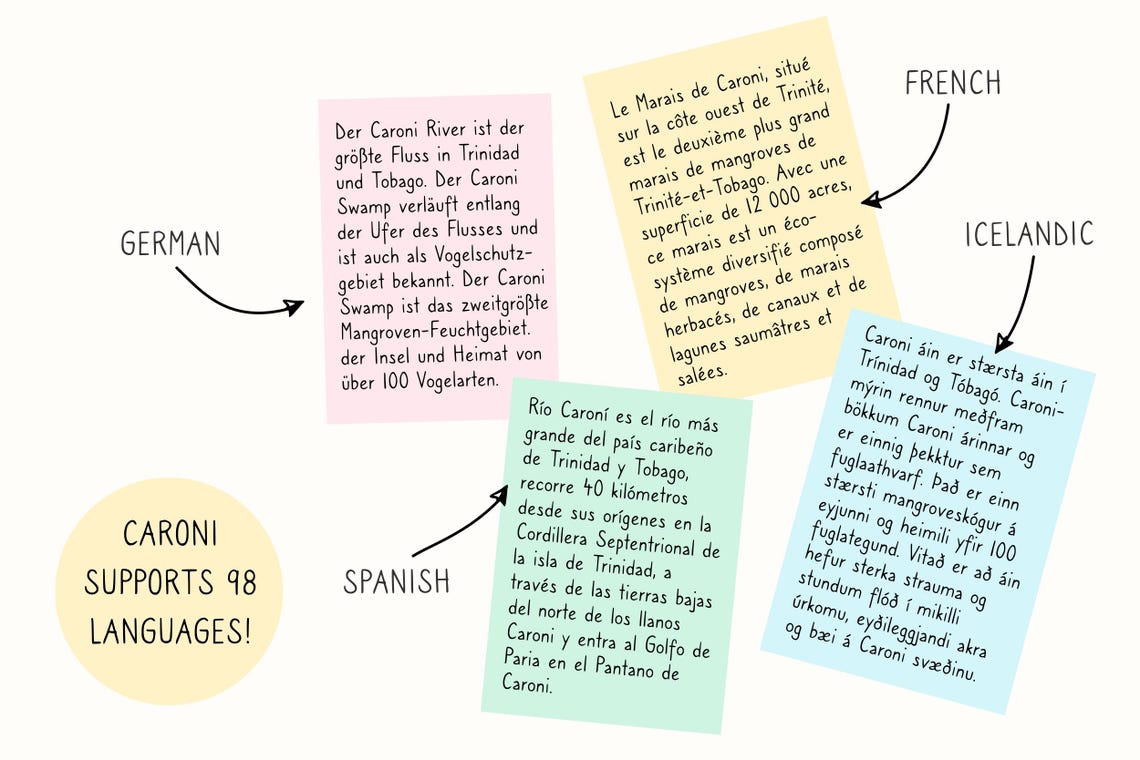 GERMAN
Der Caroni River ist der
größte Fluss in Trinidad
und Tobago. Der Caroni
Swamp verläuft entlang
der Ufer des Flusses und
ist auch als Vogelschutz-
gebiet bekannt. Der Caroni
Swamp ist das zweitgrößte
Mangroven-Feuchtgebiet.
der Insel und Heimat von
über 100 Vogelarten.
FRENCH
Le Marais de Caroni, situé
sur la côte ouest de Trinité,
est le deuxième plus grand
marais de mangroves de
Trinité-et-Tobago. Avec une
superficie de 12 000 acres,
ce marais est un éco-
système diversifié composé
de mangroves, de marais
herbacés, de canaux et de
lagunes saumâtres et
salées.
ICELANDIC
Caroni áin er stærsta áin í
Trínidad og Tóbagó. Caroni-
mýrin rennur meðfram
bökkum Caroni árinnar og
er einnig þekktur sem
fuglaathvarf. Það er einn
stærsti mangroveskógur á
eyjunni og heimili yfir 100
fuglategund. Vitað er að áin
hefur sterka strauma og
stundum flóð í mikilli
úrkomu, eyðileggjandi akra
og bæi á Caroni svæðinu.
SPANISH
Río Caroní es el río más
grande del país caribeño
de Trinidad y Tobago,
recorre 40 kilómetros
desde sus orígenes en la
Cordillera Septentrional de
la isla de Trinidad, a
través de las tierras bajas
del norte de los llanos
Caroni y entra al Golfo de
Paria en el Pantano de
Caroni.
CARONI
SUPPORTS 98
LANGUAGES!